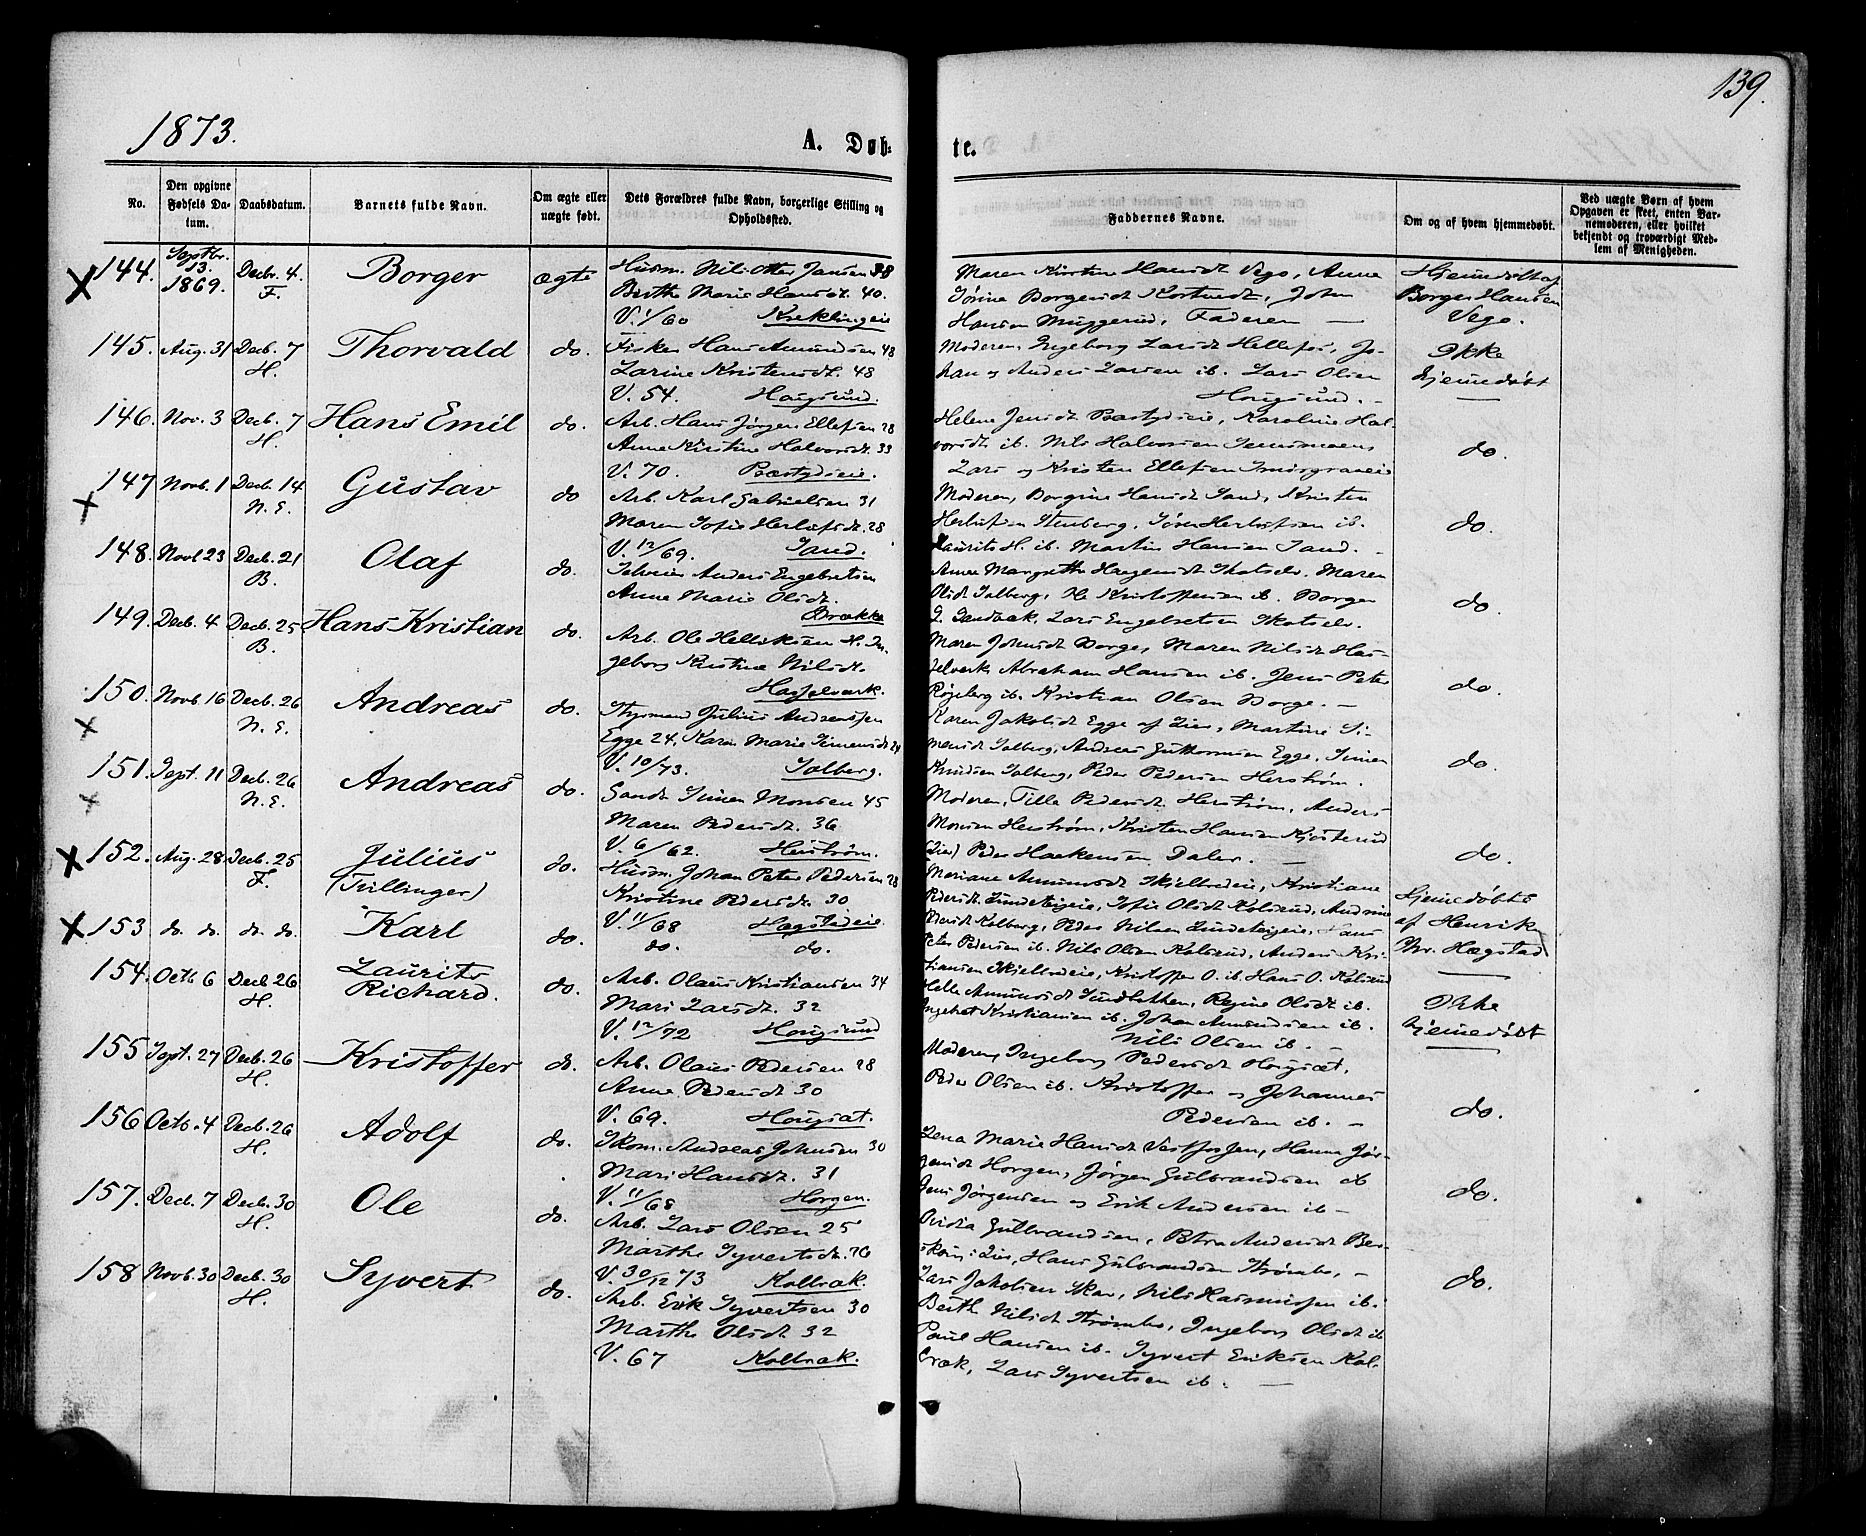 139.
1873.
A. Døb-
te.
No.
Den opgivne Fødsels Da-
tum.
Daabsdatum.
Barnets fulde Navn.
Om ægte eller
uægte født.
Dets Forældres fulde Navn, borgerlige Stilling og
Opholdssted.
Faddernes Navne.
Om og af hvem hjemmedøbt.
Ved uægte Børn af hvem
Opgaven er skeet, enten Bar-
nemoderen, eller hvilket
bekjendt og troværdigt Med-
lem af Menigheden.
144. Septbr. 13. 1869. Decbr. 4. F. Borger ægte
Husm. Nils Otter Jansen 38
Berthe Marie Hansdt. 40.
V. 1/60 Kreklingeie
Maren Kirstine Hansdt Vego, Anne
Jørine Borgersdt Kortnedt, John
Hansen Muggerud, Faderen —
Hjemedøbt af
Borger Hansen
Vego.
145. Aug. 31 Decb. 7 H. Thorvald do.
Fisker Hans Amundsen 48
Larine Kristensdt. 48
V. 54. Hougsund.
Moderen, Ingeborg Larsdt Hellefos, Jo-
han og Anders Larsen ib. Lars Olsen
Hougsund. —
Ikke
hjemedøbt
146. Nov. 3 Decb. 7 H. Hans Emil do.
Arb. Hans Jørgen Ellefsen 28
Anne Kirstine Halvorsdt. 33
V. 70. Bastydeie.
Helene Jensdt Bastydeie, Karoline Hal-
vorsdt ib. Nils Halvorsen
Lars og Kristen Ellefsen
do.
147 Novb. 1 Decb. 14 N. E. Gustav do
Arb. Karl Gabrielsen 31
Maren Sofie Herlofsdt. 28
V. 12/69. Sand.
Moderen, Borgine Hansdt Sand, Kristen
Herlofsen Stenberg, Søren Herlofsen ib.
Laurits H. ib. Martin Hansen Sand. —
do.
148. Novb 23 Decb. 21 B. Olaf do.
Selveier Anders Engebretsen
Anne Marie Olsdt.
Brække
Anne Margrethe Haagensdt Skotselv. Maren
Olsdt Solberg, Ole Kristoffersen ib. Borger
G. Sandbæk, Lars Engebretsen Skotselv.
do.
149. Decb. 4 Decb. 25 B. Hans Kristian do.
Arb. Ole Helliksen H. In-
geborg Kristine Nilsdt.
Hasselverk.
Maren Johnsdt Borge, Maren Nilsdt Has-
selverk Abraham Hansen ib. Jens Peter
Røgeberg ib. Kristian Olsen Borge. —
do.
150. Novb 16 Decb. 26 N. E. Andreas do.
Styrmand Julius Andreassen
Egge 24, Karen Marie Simensdt 24
V. 10/73. Solberg.
Karen Jakobsdt Egge af Lier, Martine Si-
mensdt Solberg, Andreas Guttormsen Egge, Simen
Knudsen Solberg, Peder Pedersen Herstrøm.
do.
151. Sept. 11 Decb. 26 N. E. Andreas do.
Gaardr. Simen Monsen 45
Maren Pedersdt. 36
V. 6/62. Herstrøm.
Moderen, Tilla Pedersdt. Herstrøm, Anders
Monsen Herstrøm, Kristen Hansen Kjosterud
(Lier) Peder Haakensen Daler. —
do.
152. Aug. 28 Decb. 25 F. Julius (Tvillinger) do.
Husm. Johan Peter Pedersen 28
Kristine Pedersdt. 30
V. 11/68 Hægstadeie
Mariane Amundsdt Skjelbredeie, Kristiane
Pedersdt Lundeteigeie, Sofie Olsdt Kolsrud, Andrine
Pedersdt Kolberg, Peder Nilsen Lundeteigeie, Hans
Peter Pedersen ib. Nils Olsen Kolsrud, Anders Kri-
stiansen Skjelbredeie, Kristoffer O. ib. Hans O. Kolsrud
Hjemedøbte
af Henrik
Hægstad
153 do. do. do. do. Karl do.
do. do.
154. Octb 6 Decb 26 H. Laurits Richard. do.
Arb. Olaus Kristiansen 34
Mari Larsdt. 32
V. 12/72 Hougsund
Helle Amundsdt Sundbakken, Regine Olsdt ib.
Ingebret Kristiansen ib. Johan Amundsen ib.
Nils Olsen ib. —
Ikke
hjemedøbt
155 Sept. 27 Decb. 26 H. Kristoffer do.
Arb. Olaus Pedersen 28
Anne Pedersdt 30
V. 69. Hougsæt.
Moderen, Ingeborg Pedersdt Hougsæt,
Peder Olsen ib. Kristoffer og Johannes
Pedersen ib. —
do.
156 Octb. 4 Decb. 26 H. Adolf do.
Skom. Andreas Johnsen 30
Mari Hansdt. 31
V. 11/68 Horgen.
Lena Marie Hansdt Vestfossen, Hanna Jør-
gensdt Horgen, Jørgen Gulbrandsen ib
Jens Jørgensen og Erik Andersen ib —
do.
157. Decb. 7 Decb. 30 H. Ole do.
Arb. Lars Olsen 25
Marthe Syvertsdt. 26
V. 30/12 73 Kolbræk.
Gulbrandsen, Petra Andersdt Ber-
skoui Lier, Hans Gulbrandsen Strømbo, —
Lars Jakobsen Skar, Nils Rasmussen ib.
do.
158 Novb. 30 Decb. 30 H. Syvert do.
Arb. Erik Syvertsen 30
Marthe Olsdt 32
V. 67 Kolbræk.
Berth Nilsdt Strømbo, Ingeborg Olsdt ib
Paul Hansen ib. Syvert Eriksen Kol-
bræk, Lars Syvertsen ib. —